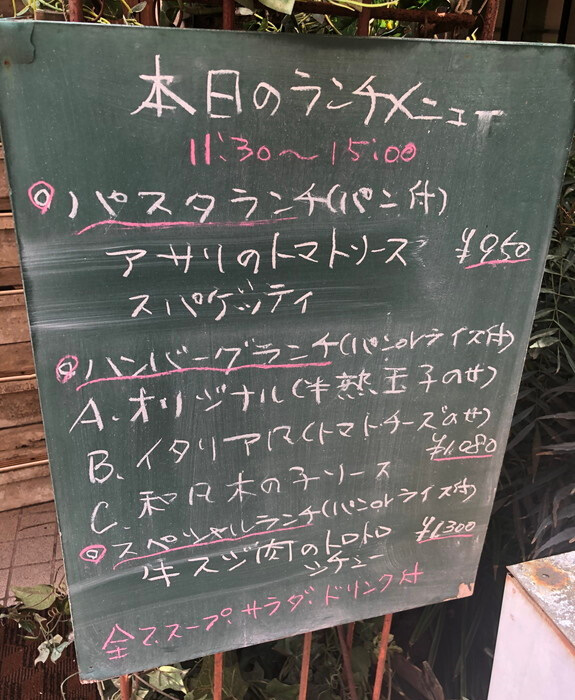 本日のランチメニュー
11:30〜15:00
◎パスタランチ(パン付)
アサリのトマトソース ¥950
スパゲッティ
◎ハンバーグランチ(パンorライス付)
A.オリジナル(半熟玉子のせ)
B.イタリア风(トマト.チーズのせ)
¥1.080
C.和风木の子ソース
◎スペシャルランチ(パンorライス付)
牛スジ肉のトロトロ ¥1.300
シチュー
全て.スープ.サラダ.ドリンク付